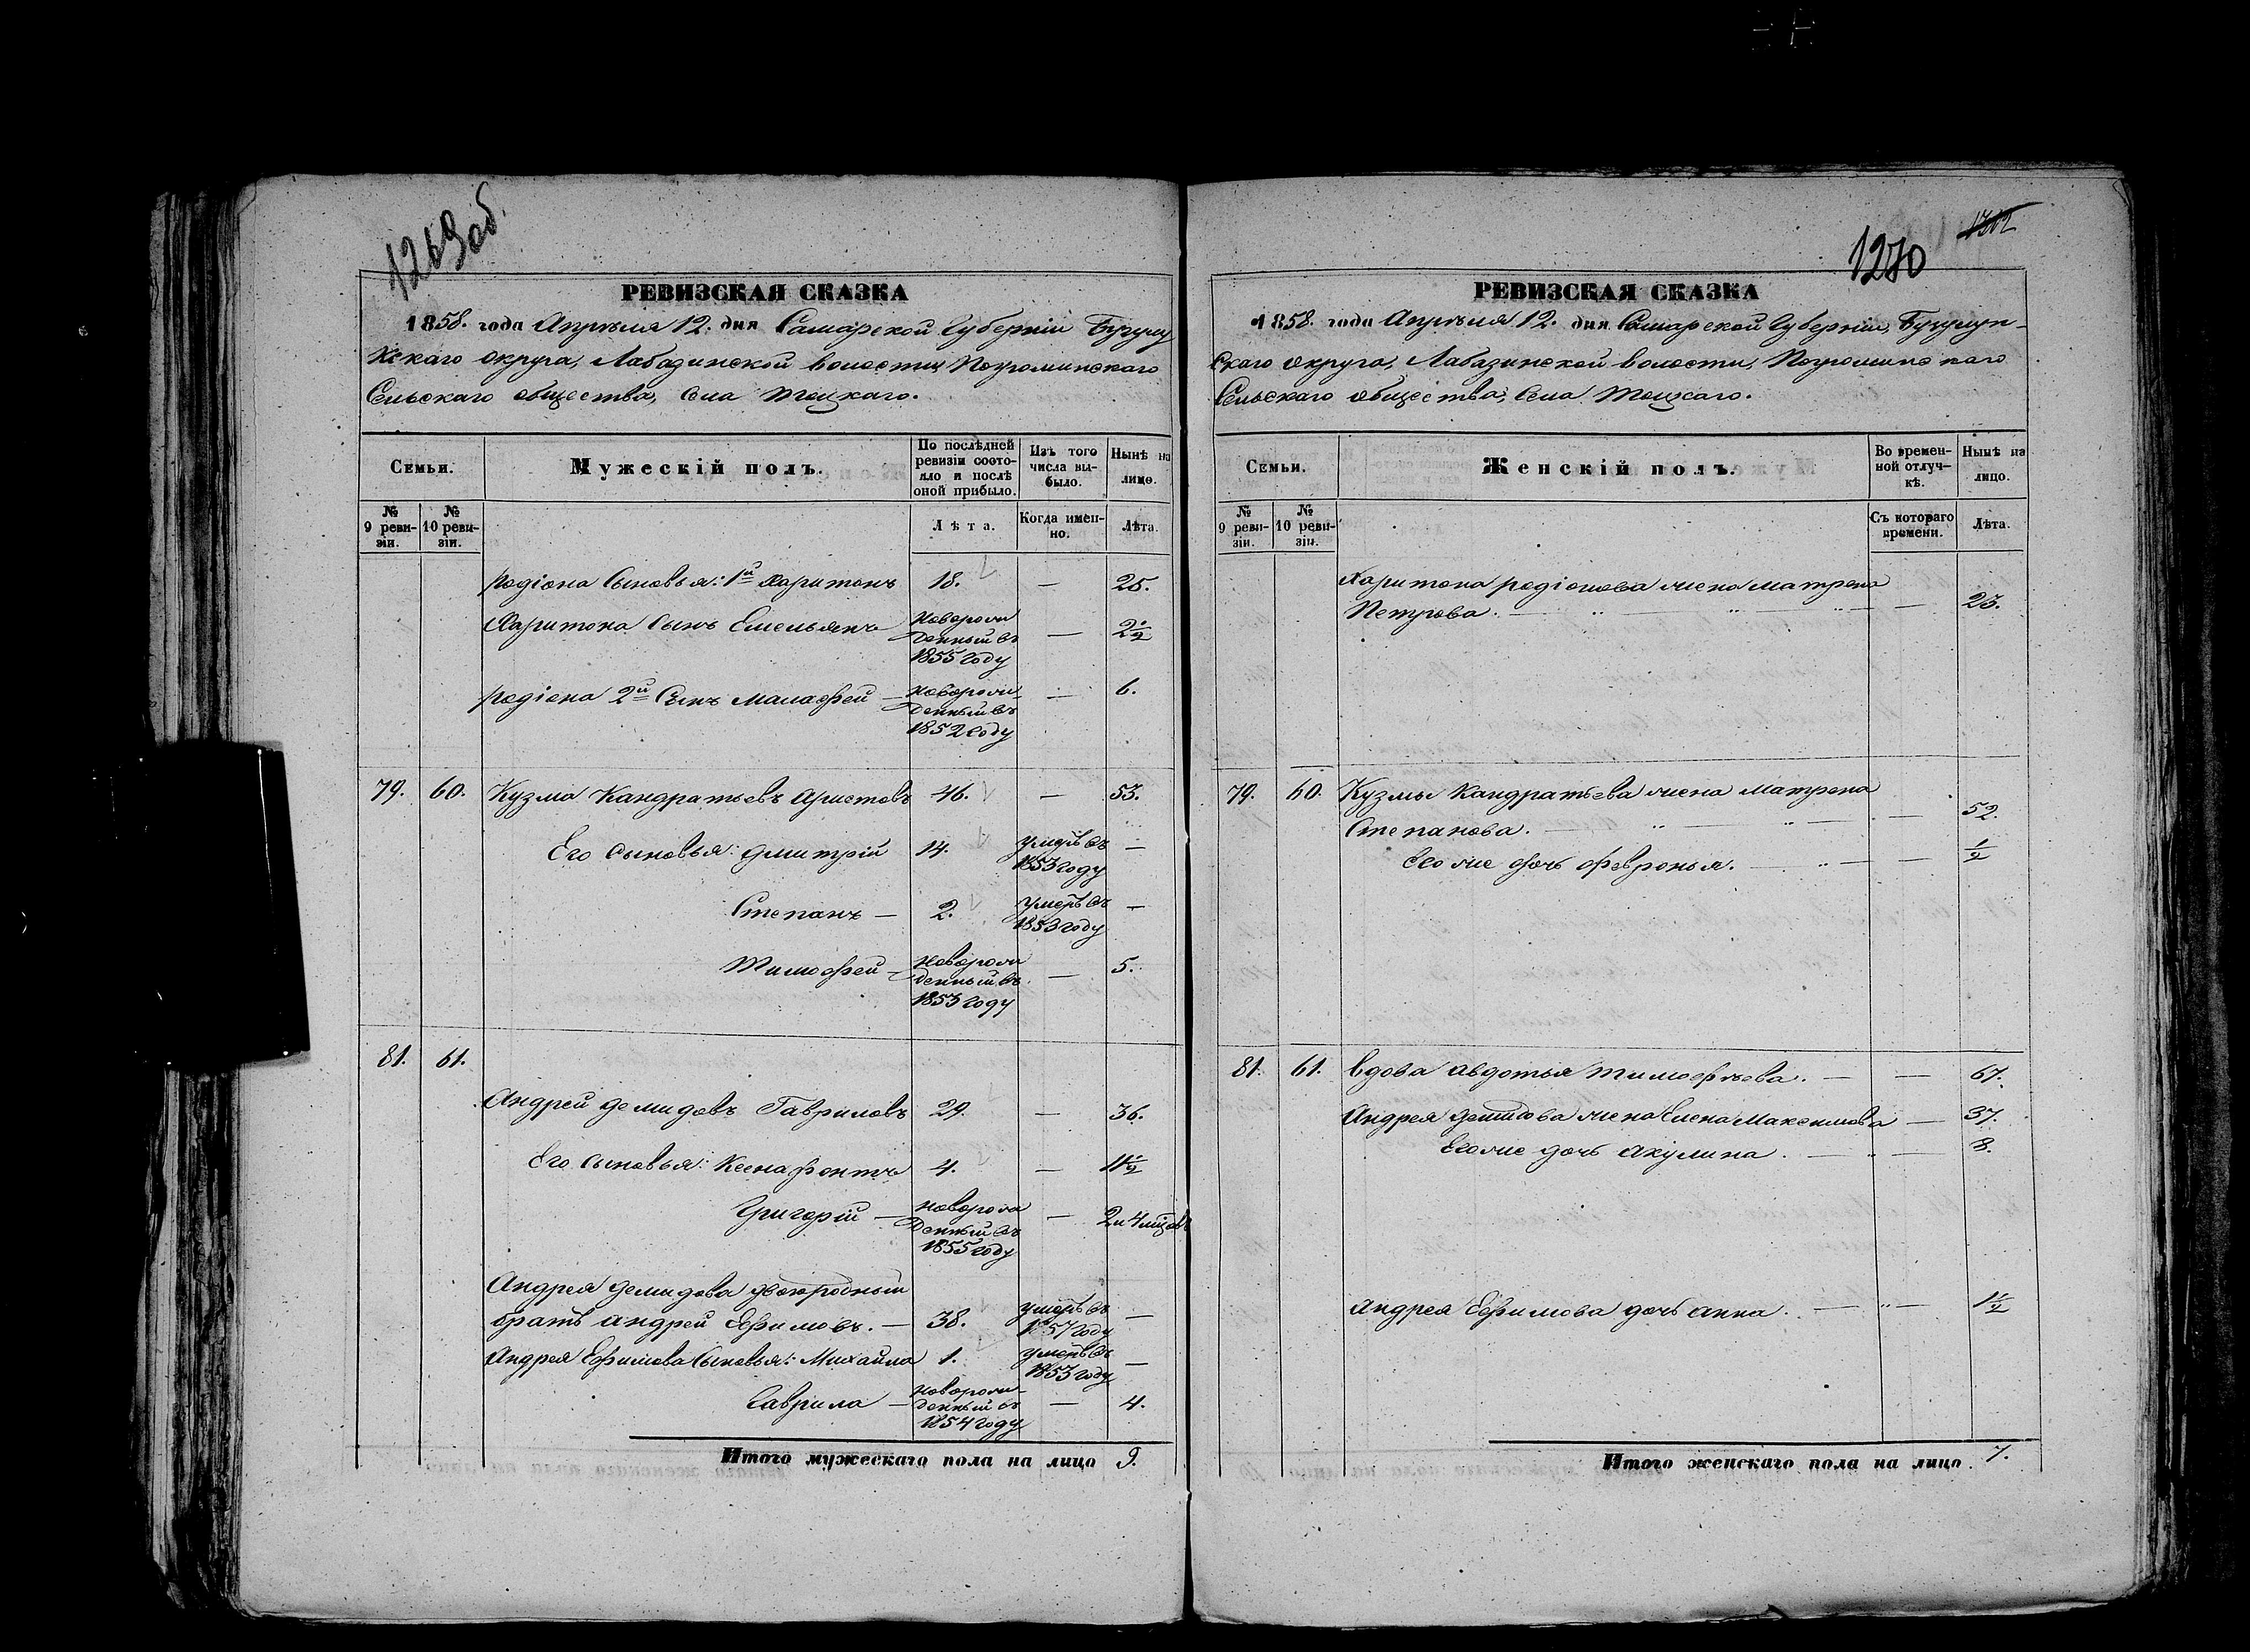 1269об.
РЕВИЗСКАЯ СКАЗКА
1858. года Апрѣля 12. дня Самарской Губерніи Бузулу
кскаго округа, Лабазинской волости, Погроминскаго
Сельскаго общества, Села Тоцкаго.
Семьи.
Мужескій полъ.
По послѣдней
ревизіи состо-
яло и послѣ
оной прибыло.
Изъ того
числа вы-
было.
Нынѣ на
лицо.
№
9 реви-
зіи.
№
10 реви-
зіи.
Лѣта.
Когда имен-
но.
Лѣта.
родіона Сыновья: 1й Харитонъ 18. — 25.
Харитона Сынъ Емельянъ
новорож
денный въ
1855 году
— 2 1/2
родіона 2й Сынъ Малафей —
новорож-
денный въ
1852 году
— 6.
79. 60. Кузма Кандратьевъ Аристовъ 46. — 53.
Его Сыновья: Дмитрій 14.
умеръ въ
1853 году
—
Степанъ — 2.
умеръ въ
1853 году
—
Тимофей —
новорож
денный въ
1853 году
— 5.
81. 61.
Андрей демидовъ Гавриловъ 29. — 36.
Его Сыновья: Ксенафонтъ 4. — 11 1/2
Григорій —
новорож
денный въ
1855 году
— 2 и 4 мцовъ
Андрея демидова двоюродный
братъ андрей Ефимовъ. — 38.
умеръ въ
1857 году
—
Андрея Ефимова Сыновья: Михайла 1.
умеръ въ
1853 году
—
Гаврила —
новорож-
денный въ
1854 году
— 4.
Итого мужескаго пола на лицо 9.
1302
1270
РЕВИЗСКАЯ СКАЗКА
1858. года Апрѣля 12. дня Самарской Губерніи, Бузулук-
скаго округа, Лабазинской волости, Погроминскаго
Сельскаго общества, Села Тоцкаго.
Семьи.
Женскій полъ.
Во времен-
ной отлуч-
кѣ.
Нынѣ на
лицо.
№
9 реви-
зіи.
№
10 реви-
зіи.
Съ котораго
времени.
Лѣта.
Харитона родіонова жена матрена
Петрова. — „ — „ — — 23.
79. 60. Кузмы Кандратьева жена матрена
Степанова. — „ — „ — — 52.
Его же дочь Февронья. — „ — — 1/2
81. 61. вдова авдотья тимофѣева. — — 67.
Андрея демидова жена Елена Максимова — 37.
Его же дочь акулина. — „ — — 8.
андрея Ефимова дочь анна. — „ — 1 1/2
Итого женскаго пола на лицо. 7.